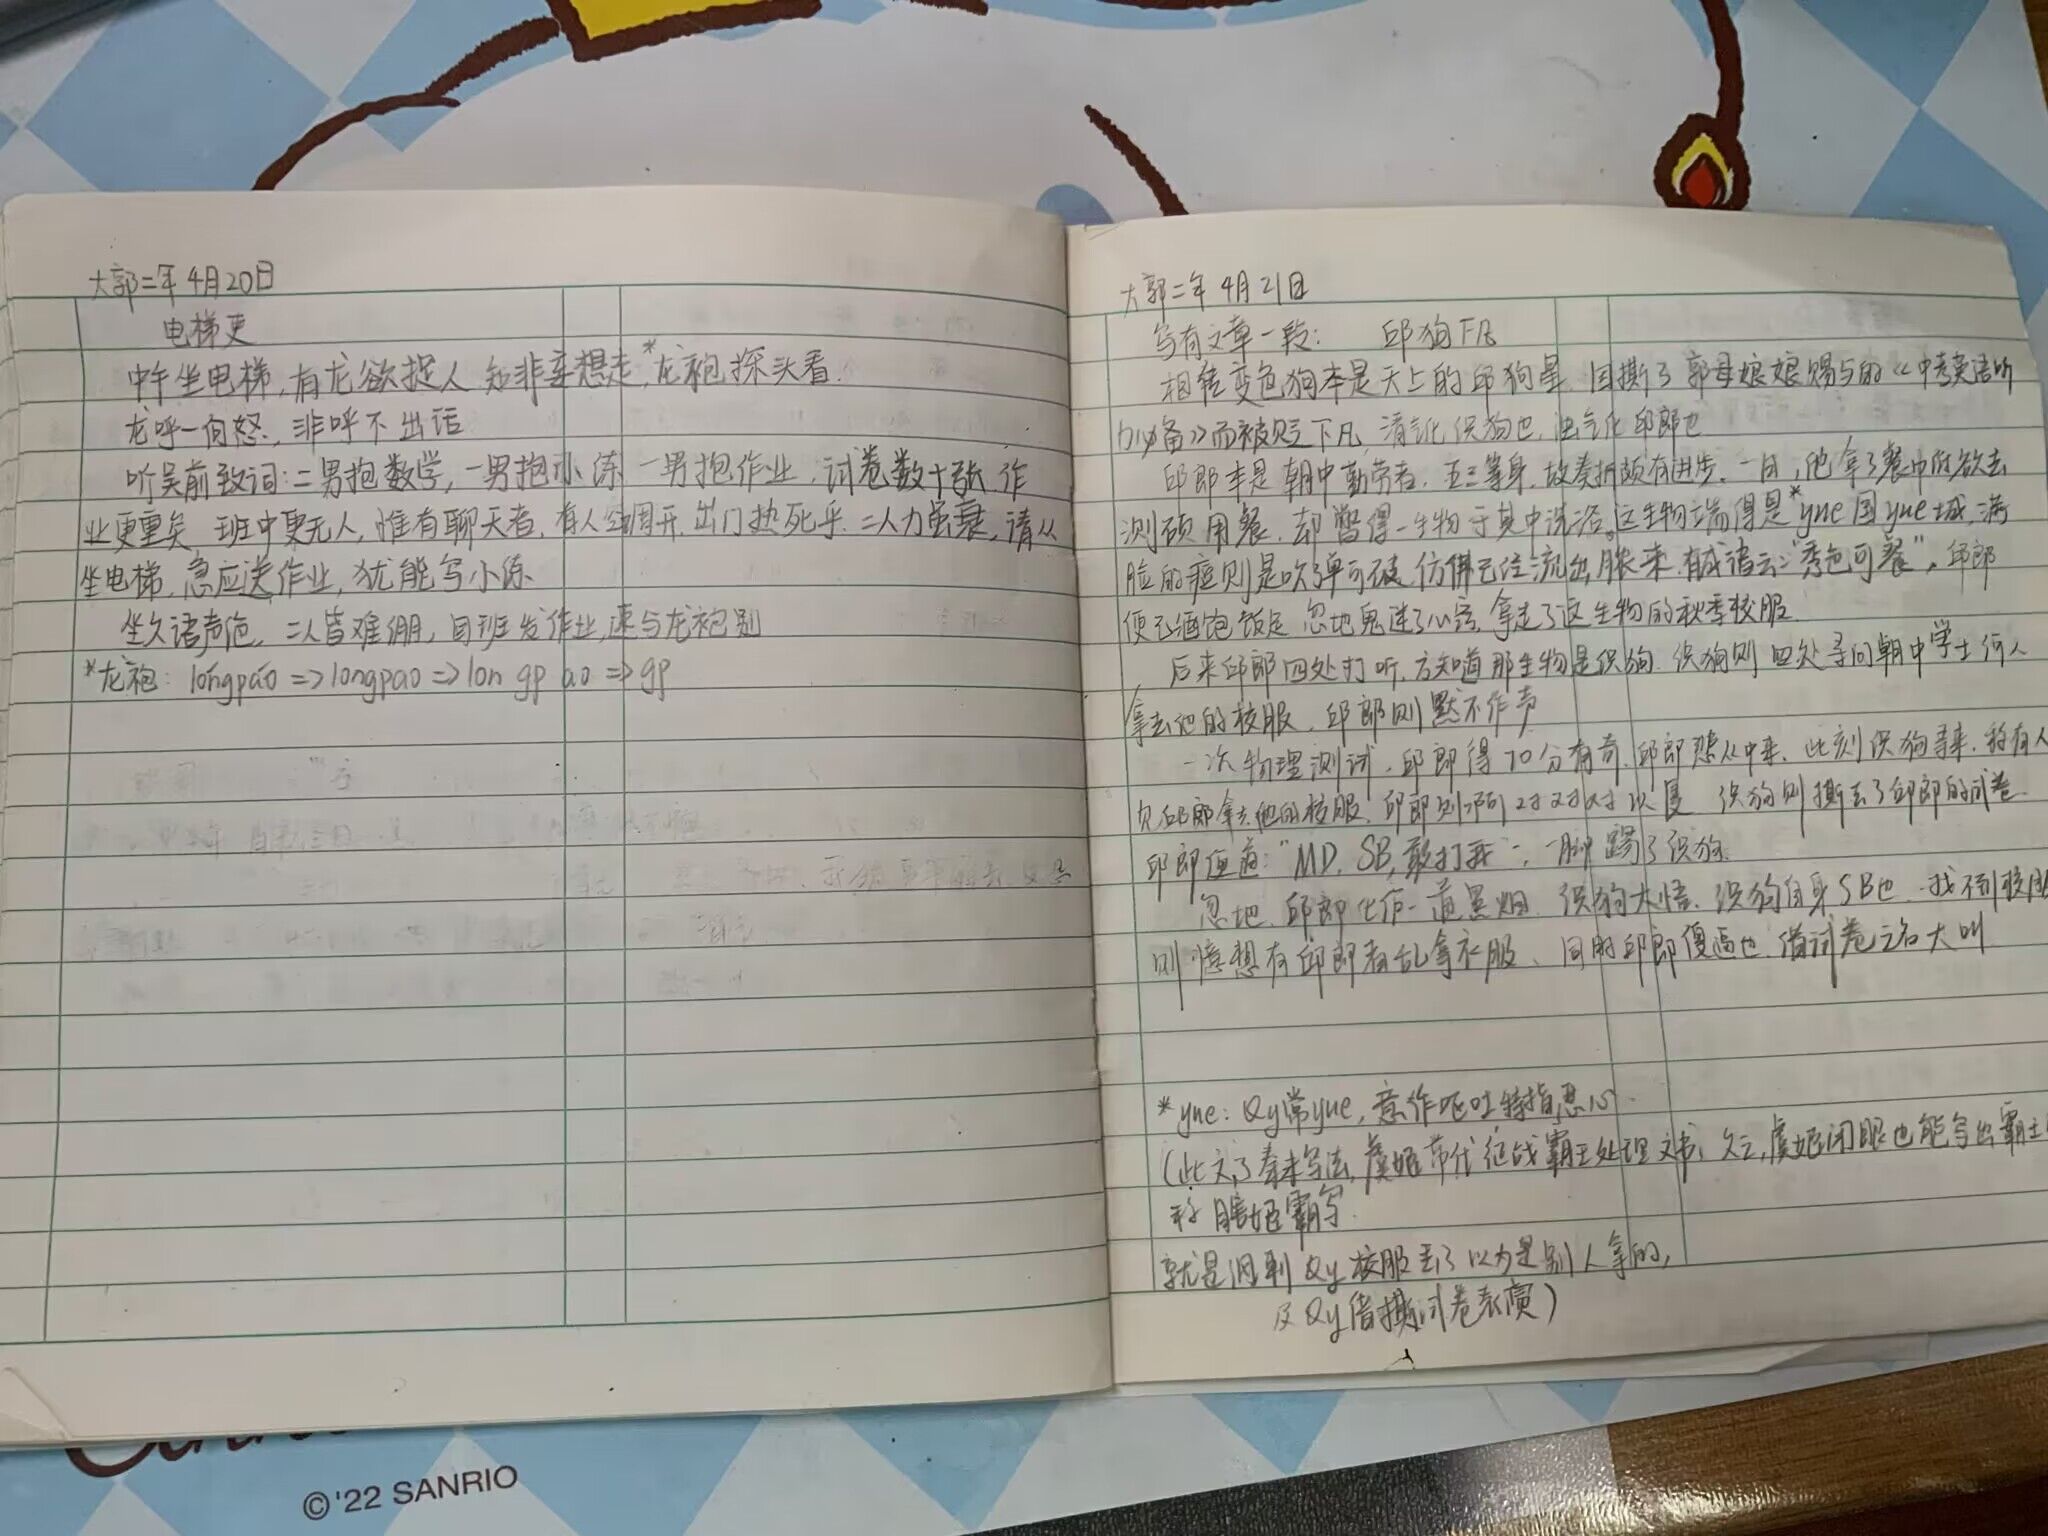 大郭二年4月20日
电梯吏
中午坐电梯,有龙欲捉人 知非妄想走,*龙袍探头看.
龙呼一何怒,非呼不出话
听吴前致词:二男抱数学,一男抱小练 一男抱作业,试卷数十张,作
业更重矣 班中更无人,惟有聊天者.有人 出门热死乎.二人力虽衰,请从
坐电梯,急应送作业,犹能写小练
坐久语声危,二人皆难绷,自班发作业,速与龙袍别
*龙袍: lóngpáo => longpao => lon gp ao => gp
大郭二年4月21日
写有文章一段: 邱狗下凡
相转变色狗本是天上的邱狗星,因撕了郭母娘娘赐与的《中考英语听
力必备》而被贬下凡,清气化 狗也,浊气化邱郎也
邱郎本是朝中勤劳者,五三等身,故奏折颇有进步.一日,他拿了餐巾 欲去
测硕用餐,却瞥得一生物于其中洗浴。这生物端得是*yue国yue城,满
脸的痘则是吹弹可破,仿佛已经流出脓来.有诚语云:“秀色可餐”,邱郎
便已酒饱饭足 忽地鬼迷了心窍,拿走了这生物的秋季校服.
后来邱郎四处打听,方知道那生物是 狗. 狗则四处寻问朝中学士何人
拿去他的校服,邱郎则默不作声
一次物理测试,邱郎得70分有奇,邱郎悲从中来,此刻 狗寻来,称有人
见邱郎拿去他的校服,邱郎则 狗则撕去了邱郎的试卷.
邱郎便道:“MD,SB,敢打我”,一脚踢了 狗.
忽地,邱郎化作一道黑烟, 狗大悟, 狗自身SB也,找不到校服
则臆想有邱郎者乱拿衣服,同时邱郎傻逼也,借试卷之名大叫
*yue: Qy常yue,意作呕吐特指恶心.
(此文了秦末写法,虞姬常代征战霸王处理文书,久之,虞姬闭眼也能写出霸王
称瞎姬霸写.
就是讽刺Qy校服丢了以为是别人拿的,
及Qy借撕试卷表演)
©'22 SANRIO